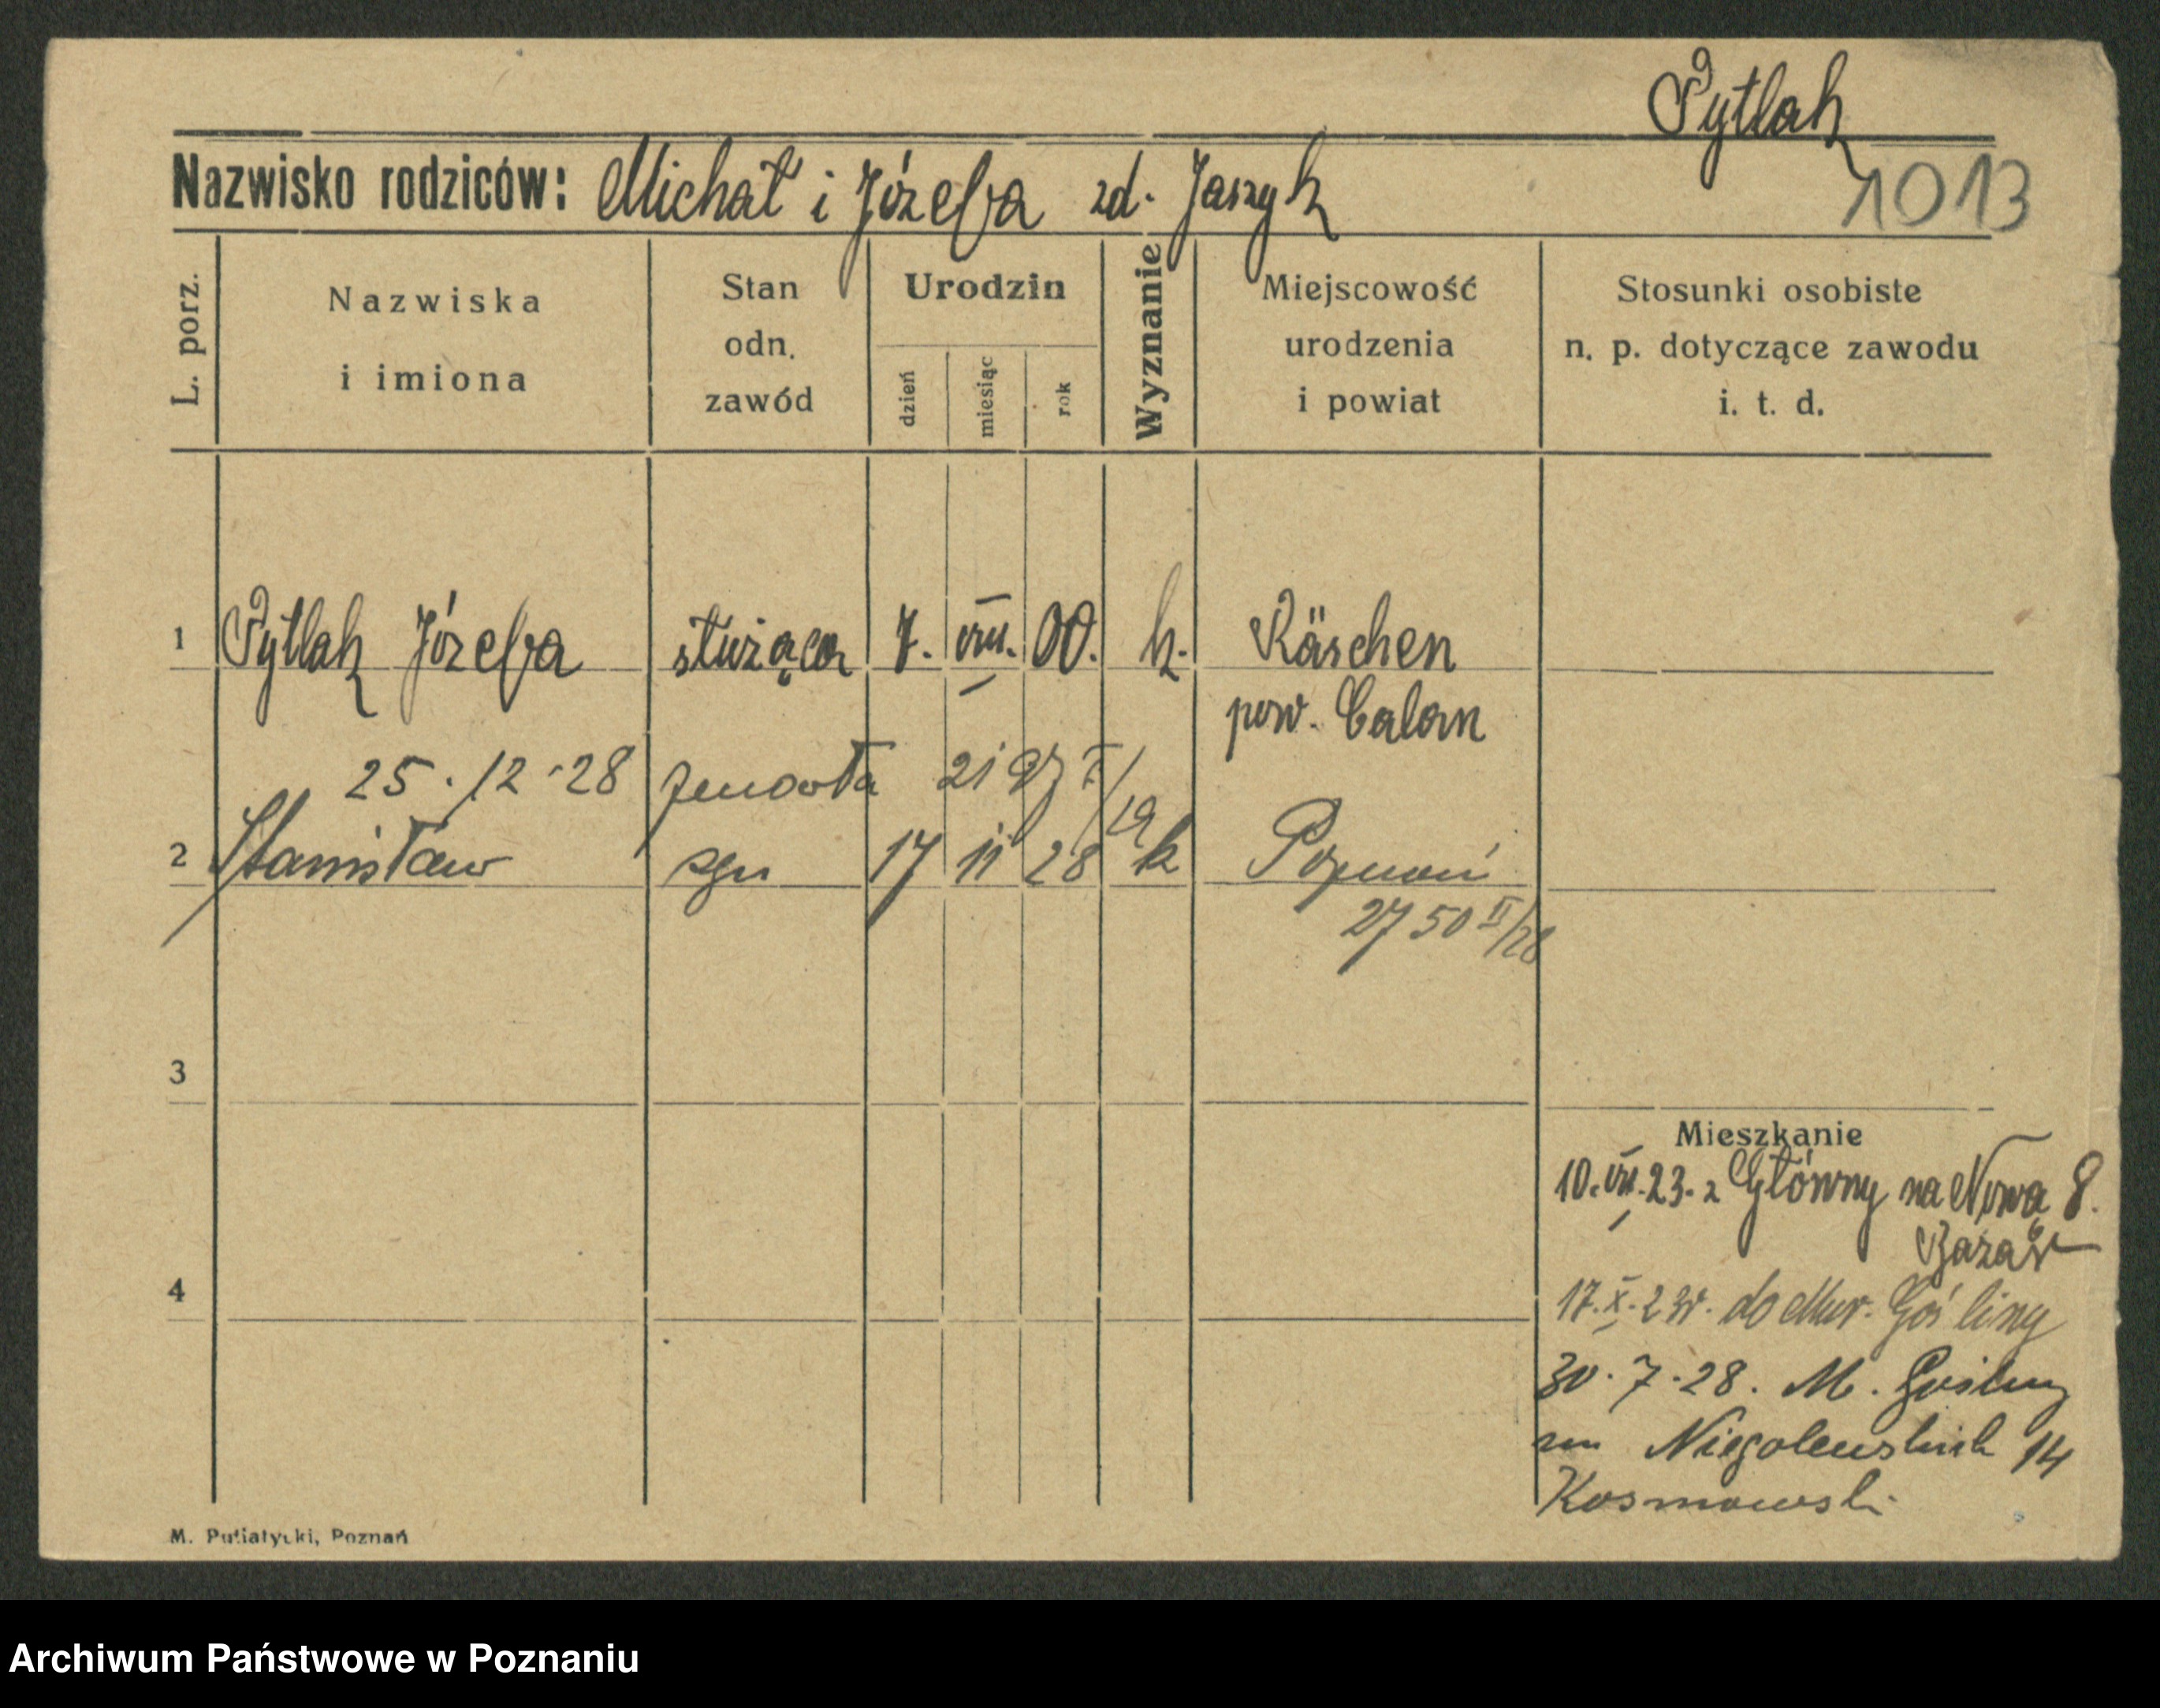 Pytlak
1013
Nazwisko rodziców: Michał i Józefa zd. Jaszyk
L. porz.
Nazwiska
i imiona
Stan
odn.
zawód
Urodzin
dzień
miesiąc
rok
Wyznanie
Miejscowość
urodzenia
i powiat
Stosunki osobiste
n. p. dotyczące zawodu
i. t. d.
1 Pytlak Józefa służąca 7. VIII. 00. k. Räschen
pow. Calau
25.12.28 zmarła
2 Stanisław syn 17 11 28 k Poznań
2750 II/28
3
4
Mieszkanie
10.VIII.23. z Główny na Nową 8.
Bazar
17.X.23r. do Mur. Gośliny
30.7.28. M. Gośliny
Niegolewskich 14
Kosmowski
M. Putiatycki, Poznań
Archiwum Państwowe w Poznaniu